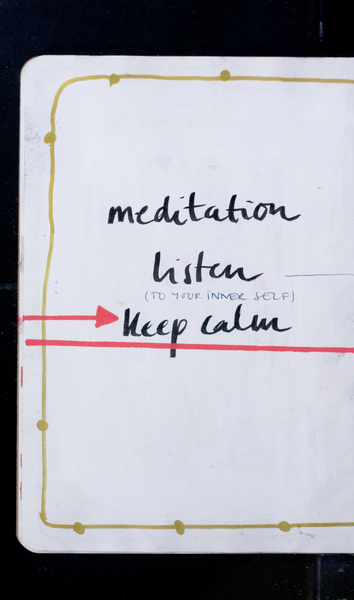 meditation
listen
(TO YOUR INNER SELF)
keep calm